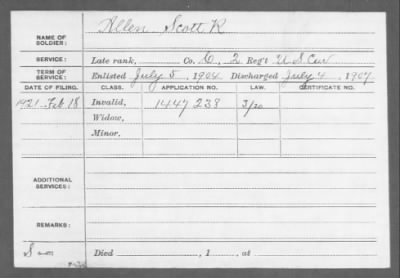 NAME OF SOLDIER: Allen Scott R
SERVICE: Late rank, Co. C, 2 Reg't U S Cav
TERM OF SERVICE: Enlisted July 5, 1904 Discharged July 4, 1907
DATE OF FILING. CLASS. APPLICATION NO. LAW. CERTIFICATE NO.
1921 Feb 18 Invalid, 1447 238
Widow,
Minor,
ADDITIONAL SERVICES:
REMARKS:
Died , 1 , at